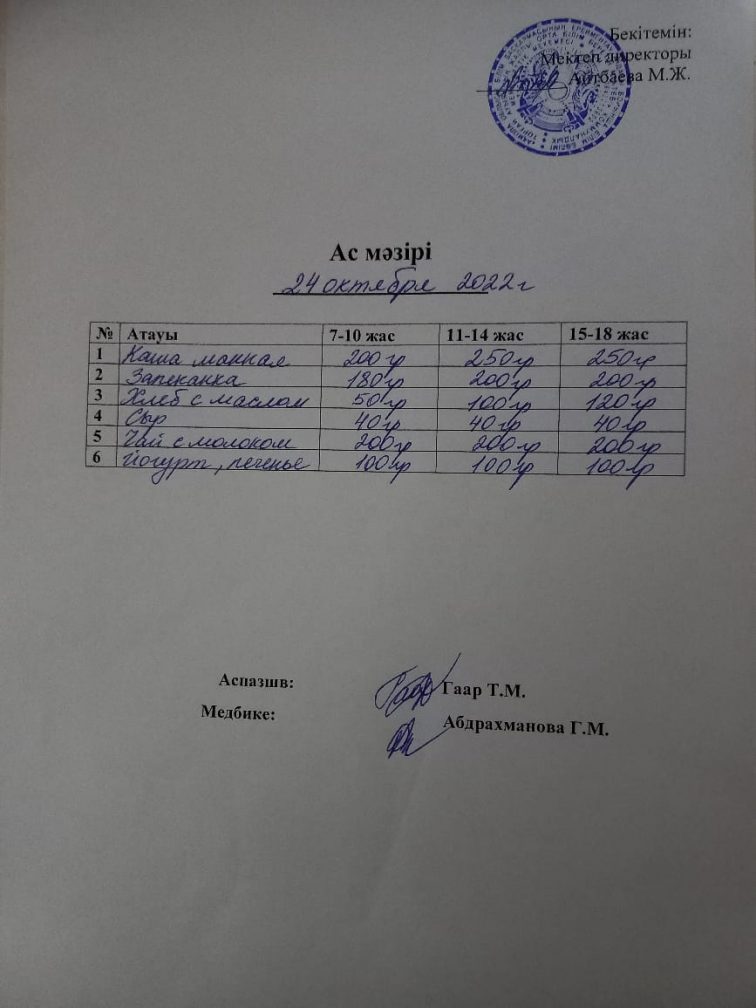 Бекітемін:
Мектеп директоры
Айтбаева М.Ж.
Ас мәзірі
24 октября 2022 г
№ Атауы 7-10 жас 11-14 жас 15-18 жас
1 Каша манная 200 гр 250 гр 250 гр
2 Запеканка 180 гр 200 гр 200 гр
3 Хлеб с маслом 50 гр 100 гр 120 гр
4 Сыр 40 гр 40 гр 40 гр
5 Чай с молоком 200 гр 200 гр 200 гр
6 Йогурт, печенье 100 гр 100 гр 100 гр
Аспазшв: Гаар Т.М.
Медбике: Абдрахманова Г.М.